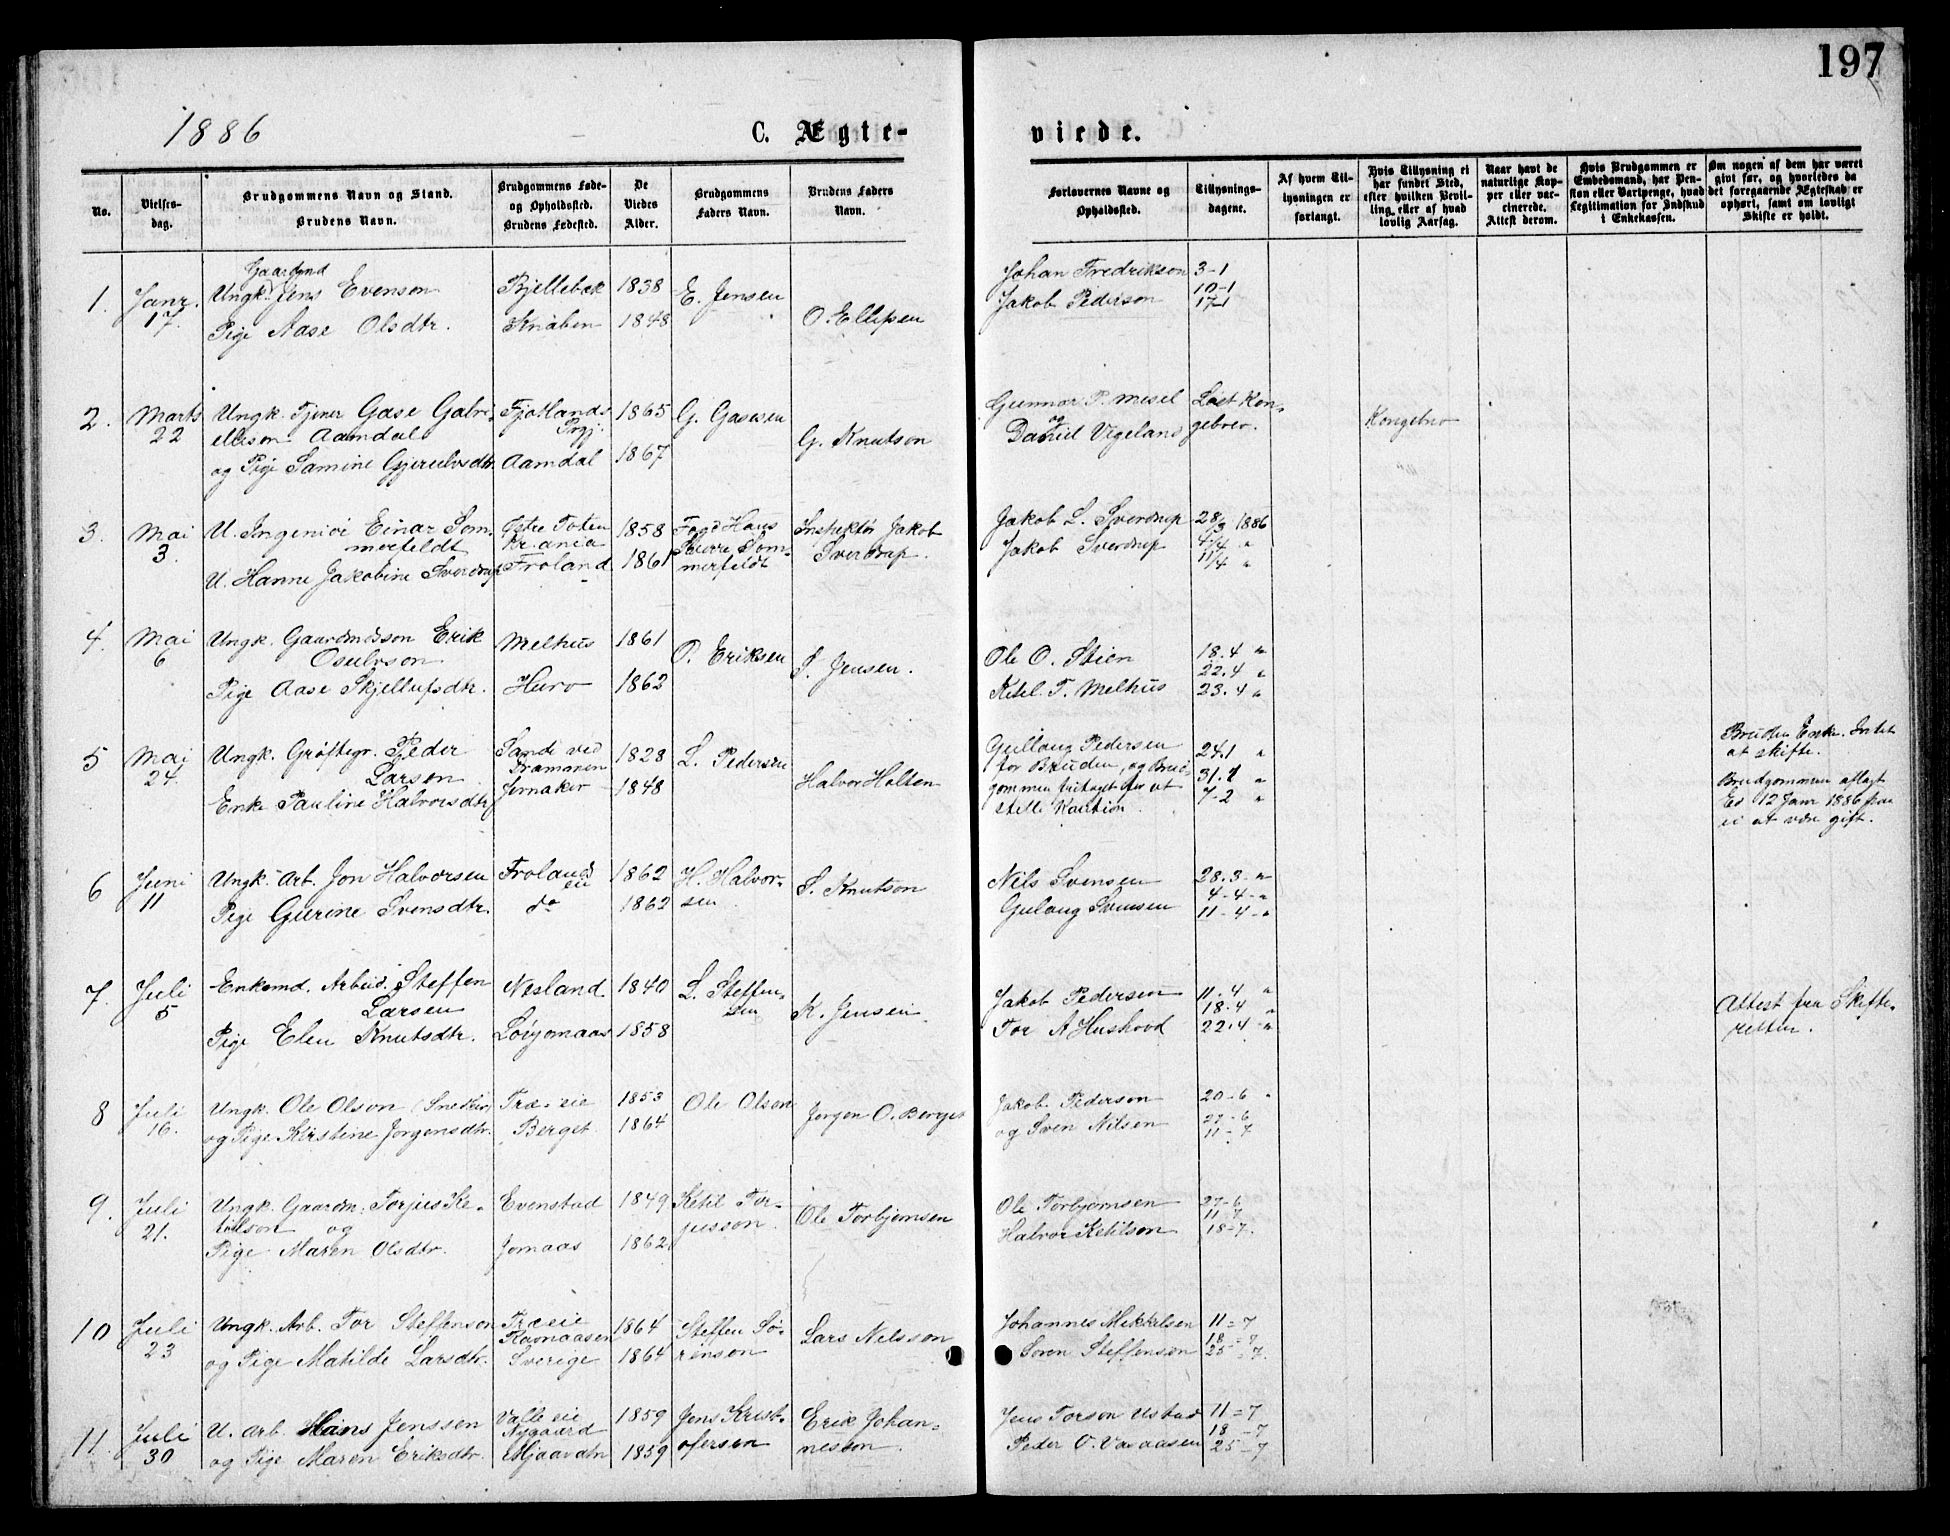 197
1886
C. Ægte-
viede.
No.
Vielses-
dag.
Brudgommens Navn og Stand.
Brudens Navn.
Brudgommens Føde-
og Opholdssted.
Brudens Fødested.
De
Viedes
Alder.
Brudgommens
Faders Navn.
Brudens Faders
Navn.
Forlovernes Navne og
Opholdssted.
Tillysnings-
dagene.
Af hvem Til-
lysningen er
forlangt.
Hvis Tillysning ei
har fundet Sted,
efter hvilken Bevil-
ling eller af hvad
lovlig Aarsag.
Naar havt de
naturlige Kop-
per eller vac-
cinerede.
Attest derom.
Hvis Brudgommen er
Embedsmand, har Pen-
sion eller Vartpenge, hvad
Legitimation for Indskud
i Enkekassen.
Om nogen af dem har været
gift før, og hvorledes da
det foregaaende Ægteskab er
ophørt, samt om lovligt
Skifte er holdt.
1.
Janr.
17.
Gaardmd
Ungk. Jens Evenson
Pige Aase Olsdtr.
Bjellebek
Knaben
1838
1848
E. Jensen
O. Ellefsen
Johan Fredrikson
Jakob Pederson
3-1
10-1
17-1
2.
Marts
22
Ungk. Tjener Gase
Aamdal
og Pige Samine Gjerulvsdtr.
Fjotlands
Prgj.
Aamdal
1865
1867
G. Gasesen
G. Knutson
Gunnar P. Mesel
og
Daniel Vigeland
Løst Kon-
gebrev.
Kongebrev
3.
Mai
3.
U. Ingeniør Einar Som
merfeldt
U. Hanne Jakobine Sverdrup
Østre Toten
Kr.ania
Froland
1858
1861
Fogd Hans
Som-
merfeldt
Inspektør Jakob
Sverdrup.
Jakob L. Sverdrup
Jakob Sverdrup
28/3 1886
4/4 "
11/4 "
4.
Mai
6
Ungk. Gaardmdsson Erik
Osulvson
Pige Aase Skjellufsdtr.
Melhus
Huro
1861
1862
O. Eriksen
S. Jensen.
Ole O. Stien
Ketil T. Melhus
18.4 "
22.4 "
23.4 "
5
Mai
24.
Ungk. Grøftegr. Peder
Larson
Enke Pauline Halvorsdtr
Sande ved
Drammen
Jernaker
1828
1848
L. Pedersen
Halvor Holten
Gullaug Pedersen
for Bruden, og Brud-
gommen fritaget for at
stille Kaution.
24.1 "
31.1 "
7-2 "
Bruden Enke. Intet
at skifte.
Brudgommen aflagt
Ed 12 Janr 1886 paa
ei at være gift.
6
Juni
11
Ungk. Arb. Jon Halvorsen
Pige Gurine Svensdtr.
Froland
do
1862
1862
H. Halvor-
sen
S. Knutson
Nils Svensen
Gulaug Svensen
28.3 - "
4-4- "
11-4- "
7.
Juli
5
Enkemd. Arbeid. Steffen
Larsen
Pige Elen Knutsdtr.
Nesland
Lovjomaas
1840
1858
L. Steffen-
sen
K. Jensen.
Jakob Pedersen
Tor A Hushovd
11.4 "
18.4 "
22.4 "
Attest fra Skifte-
retten.
8
Juli
16.
Ungk. Ole Olson (Snekker)
og Pige Kirstine Jørgensdtr.
Træ-eie
Berget
1853
1864
Ole Olson
Jørgen O. Berget
Jakob Pederson
og Sven Nilsen
20-6 "
27-6
11-7
9.
Juli
21.
Ungk. Gaardm. Torjus Ke-
tilson og
Pige Maren Olsdtr.
Evenstad
Jomaas
1849
1862
Ketil Tor-
jusson.
Ole Torbjørnsen
Ole Torbjørnsen
Halvor Ketilson
27-6
11-7
18-7.
10
Juli
23
Ungk. Arb. Tor Steffenson
og Pige Matilde Larsdtr.
Træeie
Ravnaasen
Sverige
1864
1864
Steffen Sø-
renson
Lars Nilsson
Johannes Mikkelsen
Soren Steffenson
11=7
18=7
25-7.
11.
Juli
30
U. Arb. Hans Jenssen
og Pige Maren Eriksdtr.
Valle eie
Nygaard
Mjaavatn
1859
1859
Jens Krist-
ofersen
Erik Johan-
nesson.
Jens Torson Ustad
Peder O. Vavaasen
11=7
18-7
25-7